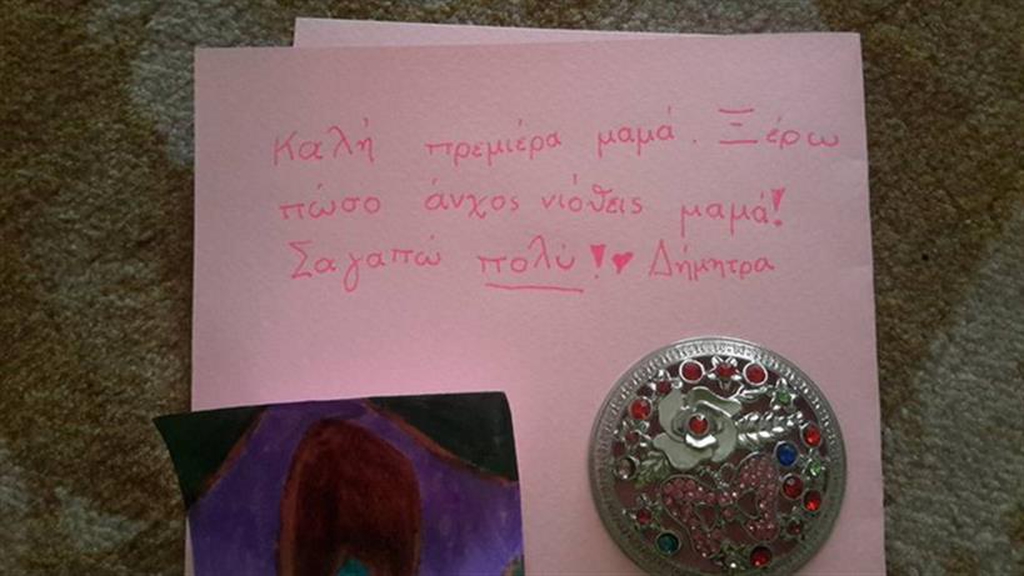 Καλή πρεμιέρα μαμά. Ξέρω
πώσο άνχος νιόθεις μαμά!
Σαγαπώ πολύ!♥ Δήμητρα